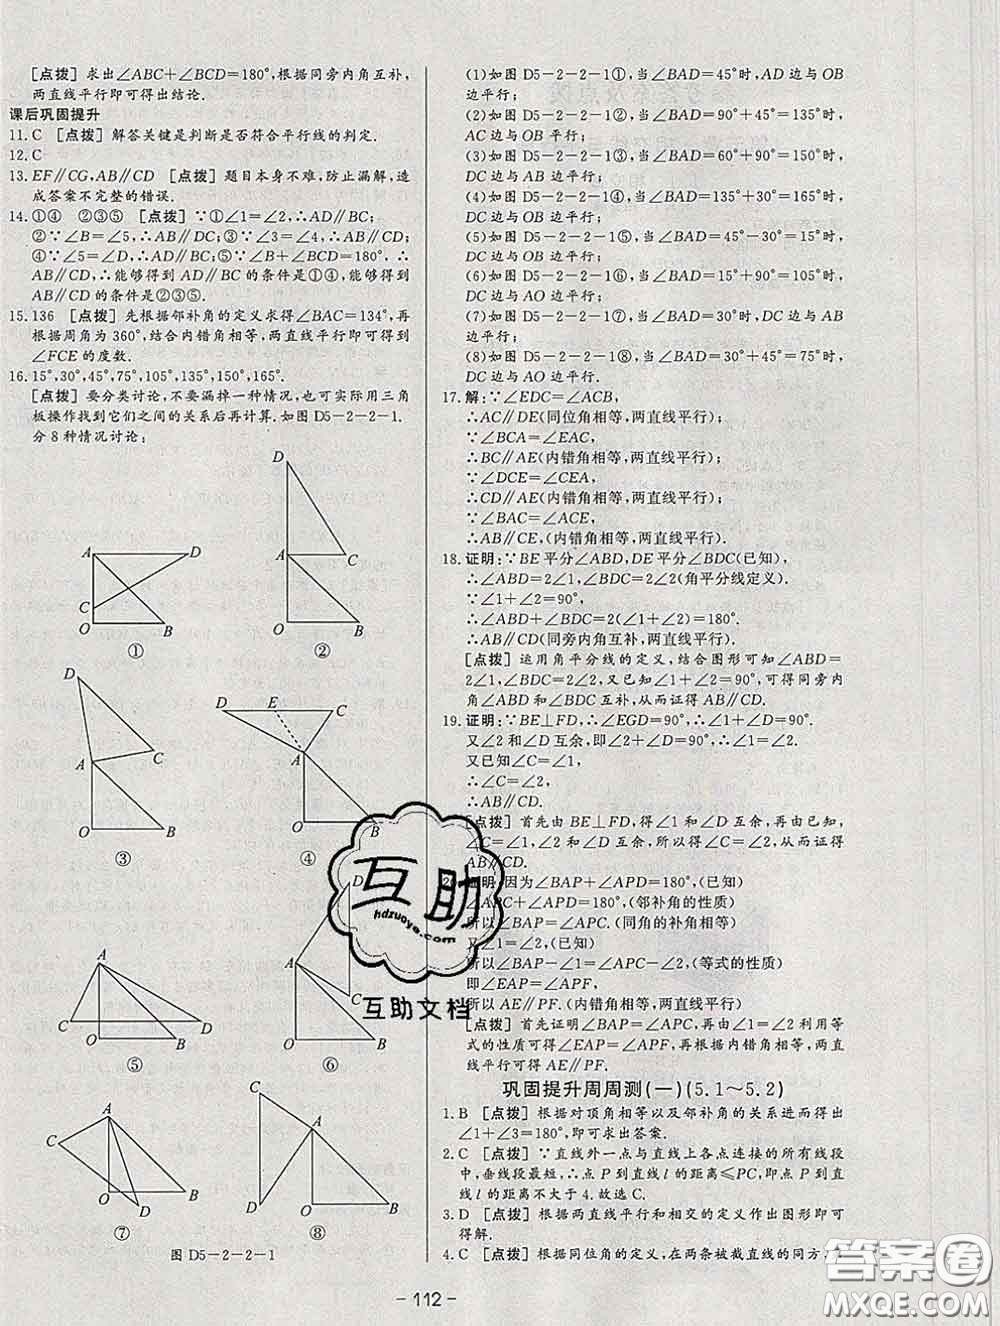 [点拨] 求出∠ABC+∠BCD=180°,根据同旁内角互补,
两直线平行即可得出结论.
课后巩固提升
11. C [点拨] 解答关键是判断是否符合平行线的判定.
12. C
13. EF∥CG,AB∥CD [点拨] 题目本身不难,防止漏解,造
成答案不完整的错误.
14. ①④ ②③⑤ [点拨] ∵①∠1=∠2,∴AD∥BC;
②∵∠B=∠5,∴AB∥DC;③∵∠3=∠4,∴AB∥CD;
④∵∠5=∠D,∴AD∥BC;⑤∵∠B+∠BCD=180°,∴
AB∥CD,∴能够得到AD∥BC的条件是①④,能够得到
AB∥CD的条件是②③⑤.
15. 136 [点拨] 先根据邻补角的定义求得∠BAC=134°,再
根据周角为360°,结合内错角相等,两直线平行即可得到
∠FCE的度数.
16. 15°,30°,45°,75°,105°,135°,150°,165°.
[点拨] 要分类讨论,不要漏掉一种情况,也可实际用三角
板操作找到它们之间的关系后再计算.如图D5-2-2-1.
分8种情况讨论:
A D C O B ①
D A C O B ②
D C A O B ③
D E C A O B ④
A C D O B ⑤
D A C O B ⑥
A C O B D ⑦
C A D O B ⑧
图 D5-2-2-1
(1)如图D5-2-2-1①,当∠BAD=45°时,AD边与OB
边平行;
(2)如图D5-2-2-1②,当∠BAD=90°+45°=135°时,
AC边与OB平行;
(3)如图D5-2-2-1③,当∠BAD=60°+90°=150°时,
DC边与AB边平行;
(4)如图D5-2-2-1④,当∠BAD=135°+30°=165°时,
DC边与OB边平行;
(5)如图D5-2-2-1⑤,当∠BAD=45°-30°=15°时,
DC边与OB边平行;
(6)如图D5-2-2-1⑥,当∠BAD=15°+90°=105°时,
DC边与AO边平行;
(7)如图D5-2-2-1⑦,当∠BAD=30°时,DC边与AB
边平行;
(8)如图D5-2-2-1⑧,当∠BAD=30°+45°=75°时,
DC边与AO边平行.
17. 解:∵∠EDC=∠ACB,
∴AC∥DE(同位角相等,两直线平行);
∵∠BCA=∠EAC,
∴BC∥AE(内错角相等,两直线平行);
∵∠DCE=∠CEA,
∴CD∥AE(内错角相等,两直线平行);
∵∠BAC=∠ACE,
∴AB∥CE,(内错角相等,两直线平行).
18. 证明:∵BE平分∠ABD,DE平分∠BDC(已知),
∴∠ABD=2∠1,∠BDC=2∠2(角平分线定义).
∵∠1+∠2=90°,
∴∠ABD+∠BDC=2(∠1+∠2)=180°.
∴AB∥CD(同旁内角互补,两直线平行).
[点拨] 运用角平分线的定义,结合图形可知∠ABD=
2∠1,∠BDC=2∠2,又已知∠1+∠2=90°,可得同旁内
角∠ABD和∠BDC互补,从而证得AB∥CD.
19. 证明:∵BE⊥FD,∴∠EGD=90°,∴∠1+∠D=90°.
又∠2和∠D互余,即∠2+∠D=90°,∴∠1=∠2.
又已知∠C=∠1,
∴∠C=∠2,
∴AB∥CD.
[点拨] 首先由BE⊥FD,得∠1和∠D互余,再由已知,
∠C=∠1,∠2和∠D互余,所以得∠C=∠2,从而证得
AB∥CD.
证明:因为∠BAP+∠APD=180°,(已知)
∠APC+∠APD=180°,(邻补角的性质)
所以∠BAP=∠APC.(同角的补角相等)
又∠1=∠2,(已知)
所以∠BAP-∠1=∠APC-∠2,(等式的性质)
即∠EAP=∠APF,
所以AE∥PF.(内错角相等,两直线平行)
[点拨] 首先证明∠BAP=∠APC,再由∠1=∠2利用等
式的性质可得∠EAP=∠APF,再根据内错角相等,两直
线平行可得AE∥PF.
巩固提升周周测(一)(5.1~5.2)
1. B [点拨] 根据对顶角相等以及邻补角的关系进而得出
∠1+∠3=180°,即可求出答案.
2. C [点拨] ∵直线外一点与直线上各点连接的所有线段
中,垂线段最短,∴点P到直线l的距离≤PC,即点P到直
线l的距离不大于4.故选C.
3. D [点拨] 根据两直线平行和相交的定义作出图形即可
得解.
4. C [点拨] 根据同位角的定义,在两条被截直线的同方,
- 112 -
互助
hdzuoye.com
互助文档
答案圈
MXQE.COM